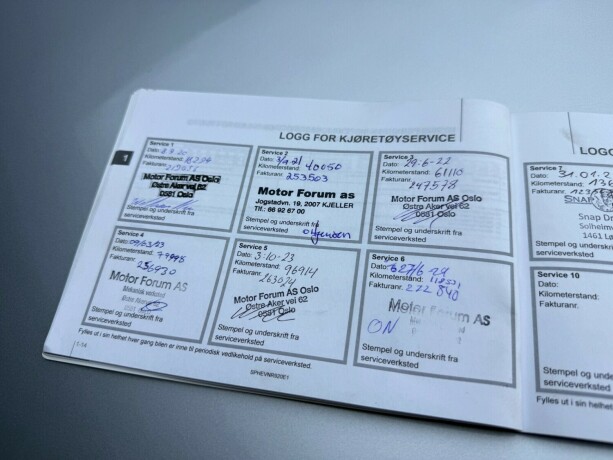 LOGG FOR KJØRETØYSERVICE
1
Service 1
Dato:
Kilometerstand:
Fakturanr.
Motor Forum AS Oslo
Østre Aker vei 62
0581 Oslo
Stempel og underskrift fra
serviceverksted
Service 2
Dato: 3/9 21
Kilometerstand: 40050
Fakturanr. 253503
Motor Forum as
Jogstadvn. 19, 2007 KJELLER
Tlf.: 66 92 67 00
Stempel og underskrift fra
serviceverksted
Service 3
Dato: 29-6-22
Kilometerstand: 61110
Fakturanr. 247578
Motor Forum AS Oslo
Østre Aker vei 62
0581 Oslo
Stempel og underskrift fra
serviceverksted
Service 4
Dato: 09/03/23
Kilometerstand: 77995
Fakturanr. 256930
Motor Forum AS
Stempel og underskrift fra
serviceverksted
Service 5
Dato: 3-10-23
Kilometerstand: 96914
Fakturanr. 263074
Motor Forum AS Oslo
Østre Aker vei 62
0581 Oslo
Stempel og underskrift fra
serviceverksted
Service 6
Dato:
Kilometerstand:
Fakturanr. 272 840
Motor Forum AS
ON
Stempel og underskrift fra
serviceverksted
Fylles ut i sin helhet hver gang bilen er inne til periodisk vedlikehold på serviceverksted.
1-14
SPHEVNR820E1
LOGG
Service 7
Dato: 31.01.2
Kilometerstand: 136
Fakturanr.
SNAP
Snap D
Solheim
1461 L
Stempel og unde
serviceverksted
Service 10
Dato:
Kilometerstand:
Fakturanr.
Stempel og unde
serviceverksted
Fylles ut i sin he